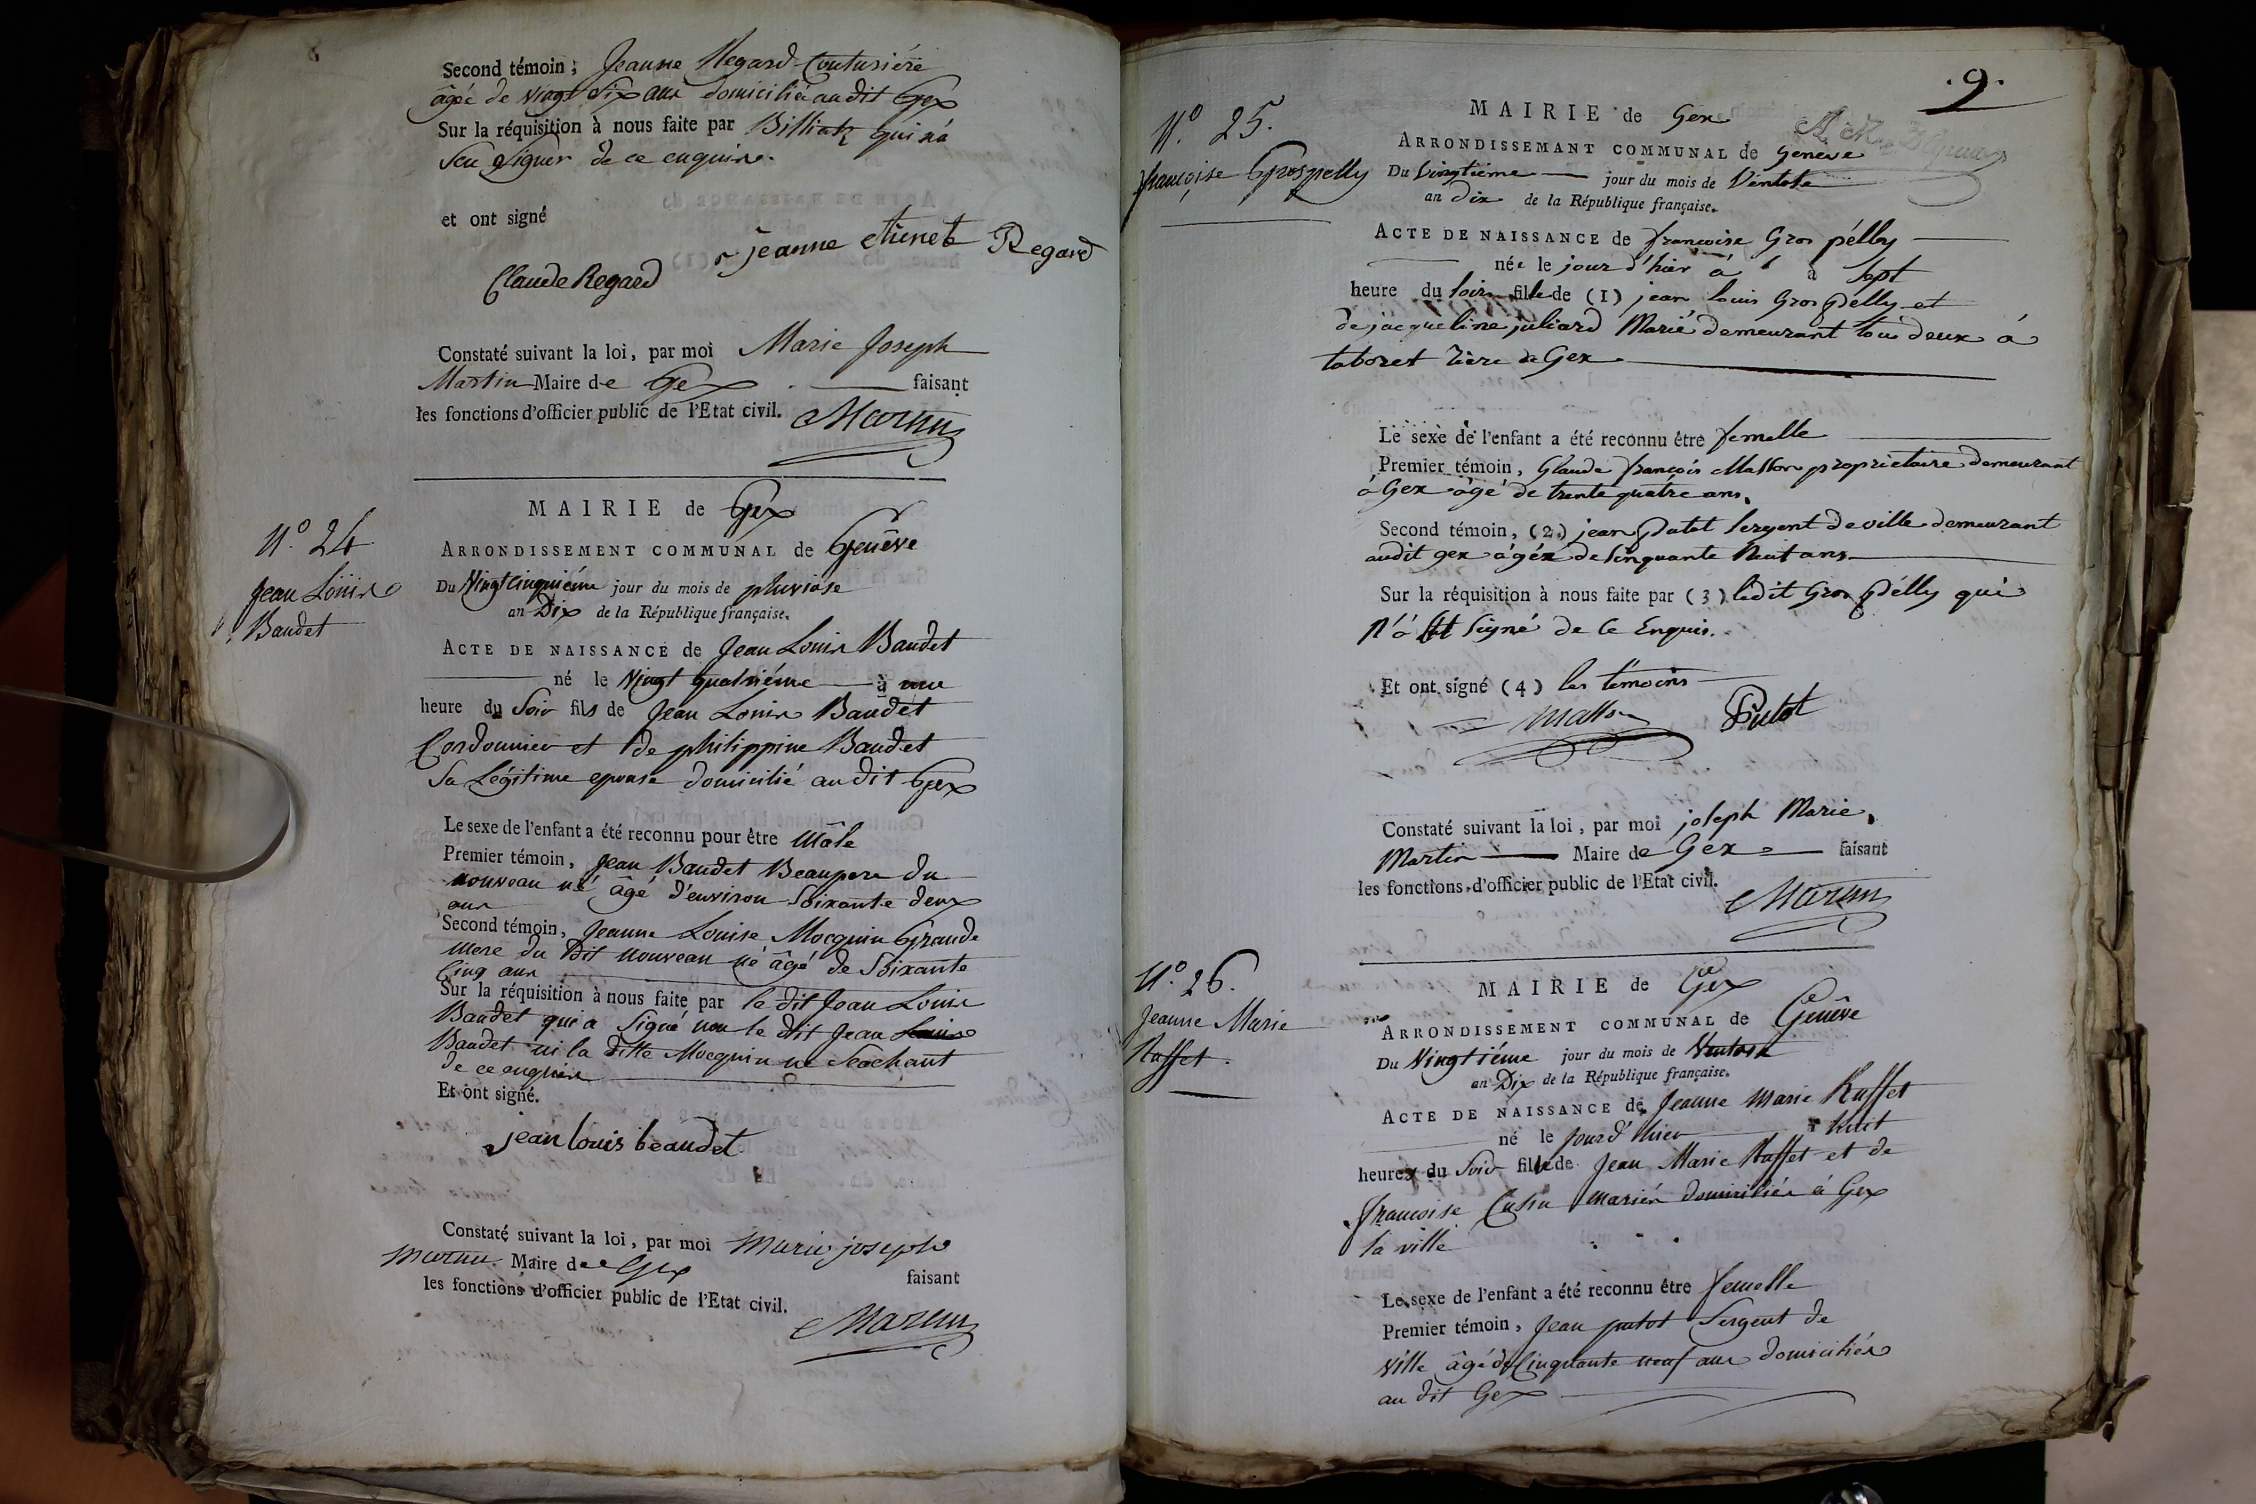 Second témoin, Jeanne Regard Couturière
âgée de vingt Six ans domiciliée au dit Gex
Sur la réquisition à nous faite par Billiat qui n'a
Seu Signer de ce enquire.
et ont signé
jeanne Regard
Claude Regard
Constaté suivant la loi, par moi Marie Joseph
Martin Maire de Gex faisant
les fonctions d'officier public de l'Etat civil. Martin
N.º 24
Jean Louis
Baudet
MAIRIE de Gex
ARRONDISSEMENT COMMUNAL de Genêve
Du Vingtcinquiéme jour du mois de pluviose
an Dix de la République française.
ACTE DE NAISSANCE de Jean Louis Baudet
né le Vingt quatriéme à une
heure du Soir fils de Jean Louis Baudet
Cordonnier et de philippine Baudet
Sa Légitime epouse domicilié au dit Gex
Le sexe de l'enfant a été reconnu pour être Mâle
Premier témoin, Jean Baudet Beaupere du
nouveau né âgé d'environ Soixante deux
ans
Second témoin, Jeanne Louise Mocquin Grande
mere du dit nouveau né âgé de Soixante
Cinq ans
Sur la réquisition à nous faite par le dit Jean Louis
Baudet qui a Signé non le dit Jean Louis
Baudet ni la ditte Mocquin ne Seachant
de ce enquire
Et ont signé.
jean louis beaudet
Constaté suivant la loi, par moi Marie joseph
Martin Maire de Gex faisant
les fonctions d'officier public de l'Etat civil.
Martin
.9.
N.º 25.
françoise Grospelly
MAIRIE de Gex
ARRONDISSEMANT COMMUNAL de Geneve
Du Vingtieme jour du mois de Ventose
an Dix de la République française.
ACTE DE NAISSANCE de françoise Gros pélly
née le jour d'hier à à Sept
heure du soir fille de (1) jean louis Gros pélly et
de jacqueline juliard Marié demeurant tous deux à
tiere de Gex
Le sexe de l'enfant a été reconnu être femelle
Premier témoin, Glaude françois Masson proprietaire demeurant
á Gex âgé de trente quatre ans.
Second témoin, (2) jean Putot Sergent de ville demeurant
audit gex âgéz de Sinquante Neuf ans
Sur la réquisition à nous faite par (3) ledit Gros pélly qui
n'á Signé de Ce Enquis.
Et ont signé (4) les témoins
Masson Putot
Constaté suivant la loi, par moi joseph Marie
Martin Maire de Gex faisant
les fonctions d'officier public de l'Etat civil.
Martin
N.º 26.
Jeanne Marie
Ruffet.
MAIRIE de Gex
ARRONDISSEMENT COMMUNAL de Genêve
Du Vingtiéme jour du mois de Ventose
an Dix de la République française.
ACTE DE NAISSANCE de Jeanne Marie Ruffet
né le jourd'hier à huit
heures du Soir fille de Jean Marie Ruffet et de
françoise mariés domiciliés á Gex
la ville
Le sexe de l'enfant a été reconnu être femelle
Premier témoin, Jean putot Sergent de
ville âgé de Cinquante neuf ans domiciliés
au dit Gex